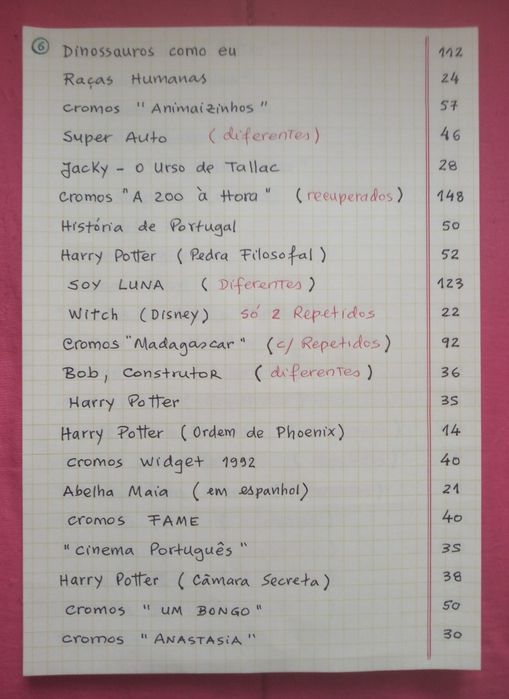 6 Dinossauros como eu 112
Raças Humanas 24
Cromos "Animaizinhos" 57
Super Auto (diferentes) 46
Jacky - o Urso de Tallac 28
Cromos "A 200 à Hora" (recuperados) 148
História de Portugal 50
Harry Potter (Pedra Filosofal) 52
SOY LUNA (Diferentes) 123
Witch (Disney) só 2 Repetidos 22
Cromos "Madagascar" (c/ Repetidos) 92
Bob, Construtor (diferentes) 36
Harry Potter 35
Harry Potter (Ordem de Phoenix) 14
Cromos Widget 1992 40
Abelha Maia (em espanhol) 21
Cromos FAME 40
"Cinema Português" 35
Harry Potter (Câmara Secreta) 38
Cromos "UM BONGO" 50
Cromos "ANASTASIA" 30